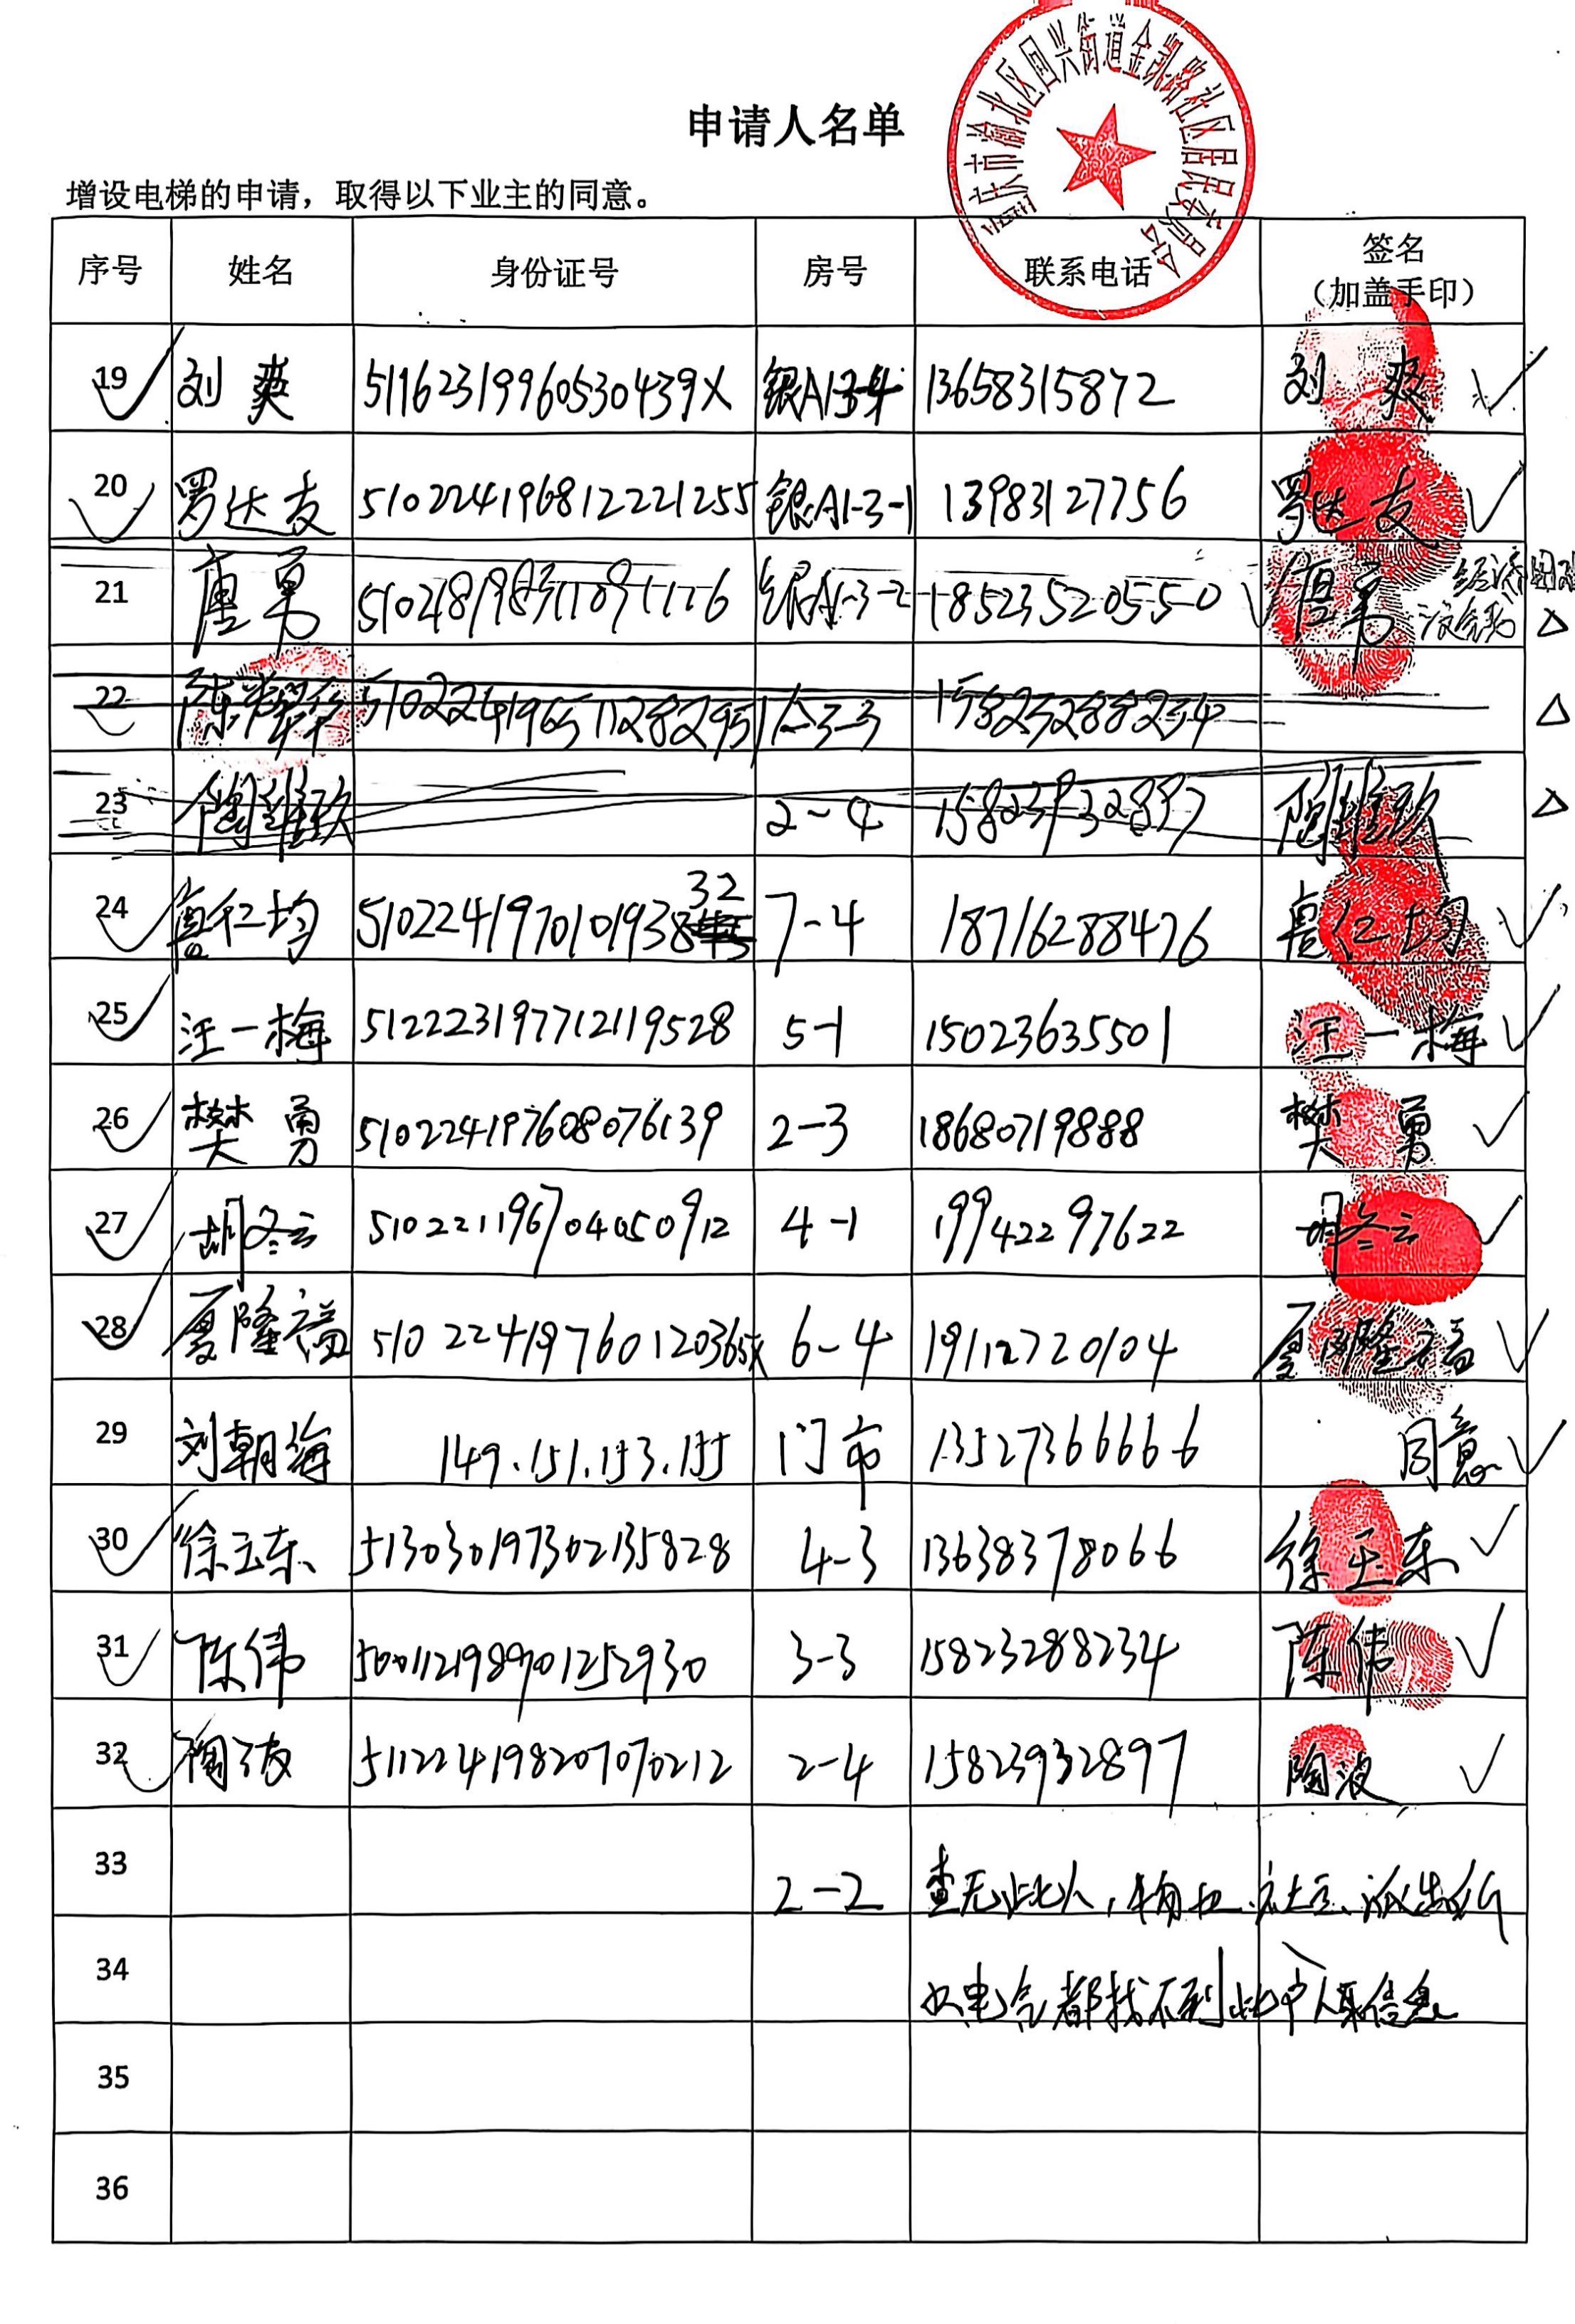 重庆市渝北区回兴街道金凯路社区居民委员会
申请人名单
增设电梯的申请，取得以下业主的同意。
序号 姓名 身份证号 房号 联系电话 签名（加盖手印）
19 刘爽 51162319960530439X 银A1-3-4 13658315872 刘爽
20 罗达友 510224196812221255 银A1-3-1 13983127756 罗达友
21 唐勇 银A1-3-2 18523520550 唐勇 经济困难
22 510224196511282951 1-3-3 15823288234
23 陶维玖 2-4 15823932897 陶维玖
24 唐仁均 510224197010193832 7-4 18716288476 唐仁均
25 汪一梅 512223197712119528 5-1 15023635501 汪一梅
26 樊勇 510224197608076139 2-3 18680719888 樊勇
27 胡冬云 510221196704050912 4-1 19942297622 胡冬云
28 夏隆福 51022419760120365X 6-4 19112720104 夏隆福
29 刘朝海 149.151.153.155 门市 13527366666 同意
30 徐玉东 513030197302135828 4-3 13638378066 徐玉东
31 陈伟 500112198901252930 3-3 15823288234 陈伟
32 陶波 511224198207070212 2-4 15823932897 陶波
33 2-2 查无此人，物业、社区、派出所
34 水电气都找不到此户人家信息
35
36